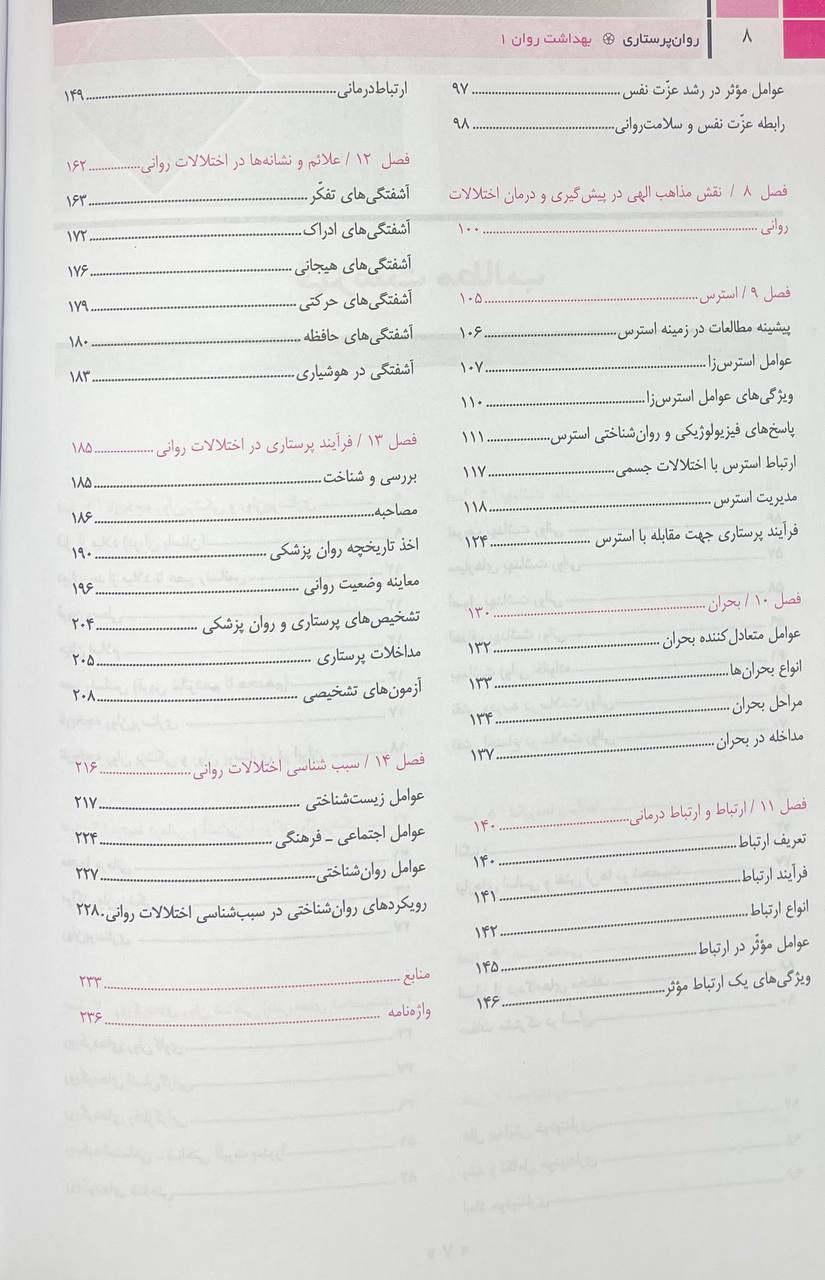 ۸
روان‌پرستاری ֍ بهداشت روان ۱
عوامل مؤثر در رشد عزّت نفس ........ ۹۷
رابطه عزّت نفس و سلامت‌روانی ........ ۹۸
فصل ۸ / نقش مذاهب الهی در پیش‌گیری و درمان اختلالات
روانی ........ ۱۰۰
فصل ۹ / استرس ........ ۱۰۵
پیشینه مطالعات در زمینه استرس ........ ۱۰۶
عوامل استرس‌زا ........ ۱۰۷
ویژگی‌های عوامل استرس‌زا ........ ۱۱۰
پاسخ‌های فیزیولوژیکی و روان‌شناختی استرس ........ ۱۱۱
ارتباط استرس با اختلالات جسمی ........ ۱۱۷
مدیریت استرس ........ ۱۱۸
فرآیند پرستاری جهت مقابله با استرس ........ ۱۲۴
فصل ۱۰ / بحران ........ ۱۳۰
عوامل متعادل‌کننده بحران ........ ۱۳۲
انواع بحران‌ها ........ ۱۳۳
مراحل بحران ........ ۱۳۴
مداخله در بحران ........ ۱۳۷
فصل ۱۱ / ارتباط و ارتباط درمانی ........ ۱۴۰
تعریف ارتباط ........ ۱۴۰
فرآیند ارتباط ........ ۱۴۱
انواع ارتباط ........ ۱۴۲
عوامل مؤثّر در ارتباط ........ ۱۴۵
ویژگی‌های یک ارتباط مؤثر ........ ۱۴۶
ارتباط‌درمانی ........ ۱۴۹
فصل ۱۲ / علائم و نشانه‌ها در اختلالات روانی ........ ۱۶۲
آشفتگی‌های تفکّر ........ ۱۶۳
آشفتگی‌های ادراک ........ ۱۷۲
آشفتگی‌های هیجانی ........ ۱۷۶
آشفتگی‌های حرکتی ........ ۱۷۹
آشفتگی‌های حافظه ........ ۱۸۰
آشفتگی در هوشیاری ........ ۱۸۳
فصل ۱۳ / فرآیند پرستاری در اختلالات روانی ........ ۱۸۵
بررسی و شناخت ........ ۱۸۵
مصاحبه ........ ۱۸۶
اخذ تاریخچه روان پزشکی ........ ۱۹۰
معاینه وضعیت روانی ........ ۱۹۶
تشخیص‌های پرستاری و روان پزشکی ........ ۲۰۴
مداخلات پرستاری ........ ۲۰۵
آزمون‌های تشخیصی ........ ۲۰۸
فصل ۱۴ / سبب شناسی اختلالات روانی ........ ۲۱۶
عوامل زیست‌شناختی ........ ۲۱۷
عوامل اجتماعی ـ فرهنگی ........ ۲۲۴
عوامل روان‌شناختی ........ ۲۲۷
رویکردهای روان‌شناختی در سبب‌شناسی اختلالات روانی. ۲۲۸
منابع ........ ۲۳۳
واژه‌نامه ........ ۲۳۶